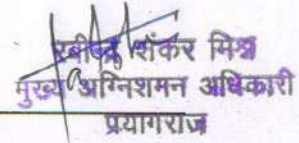 रवीन्द्र शंकर मिश्र
मुख्य अग्निशमन अधिकारी
प्रयागराज